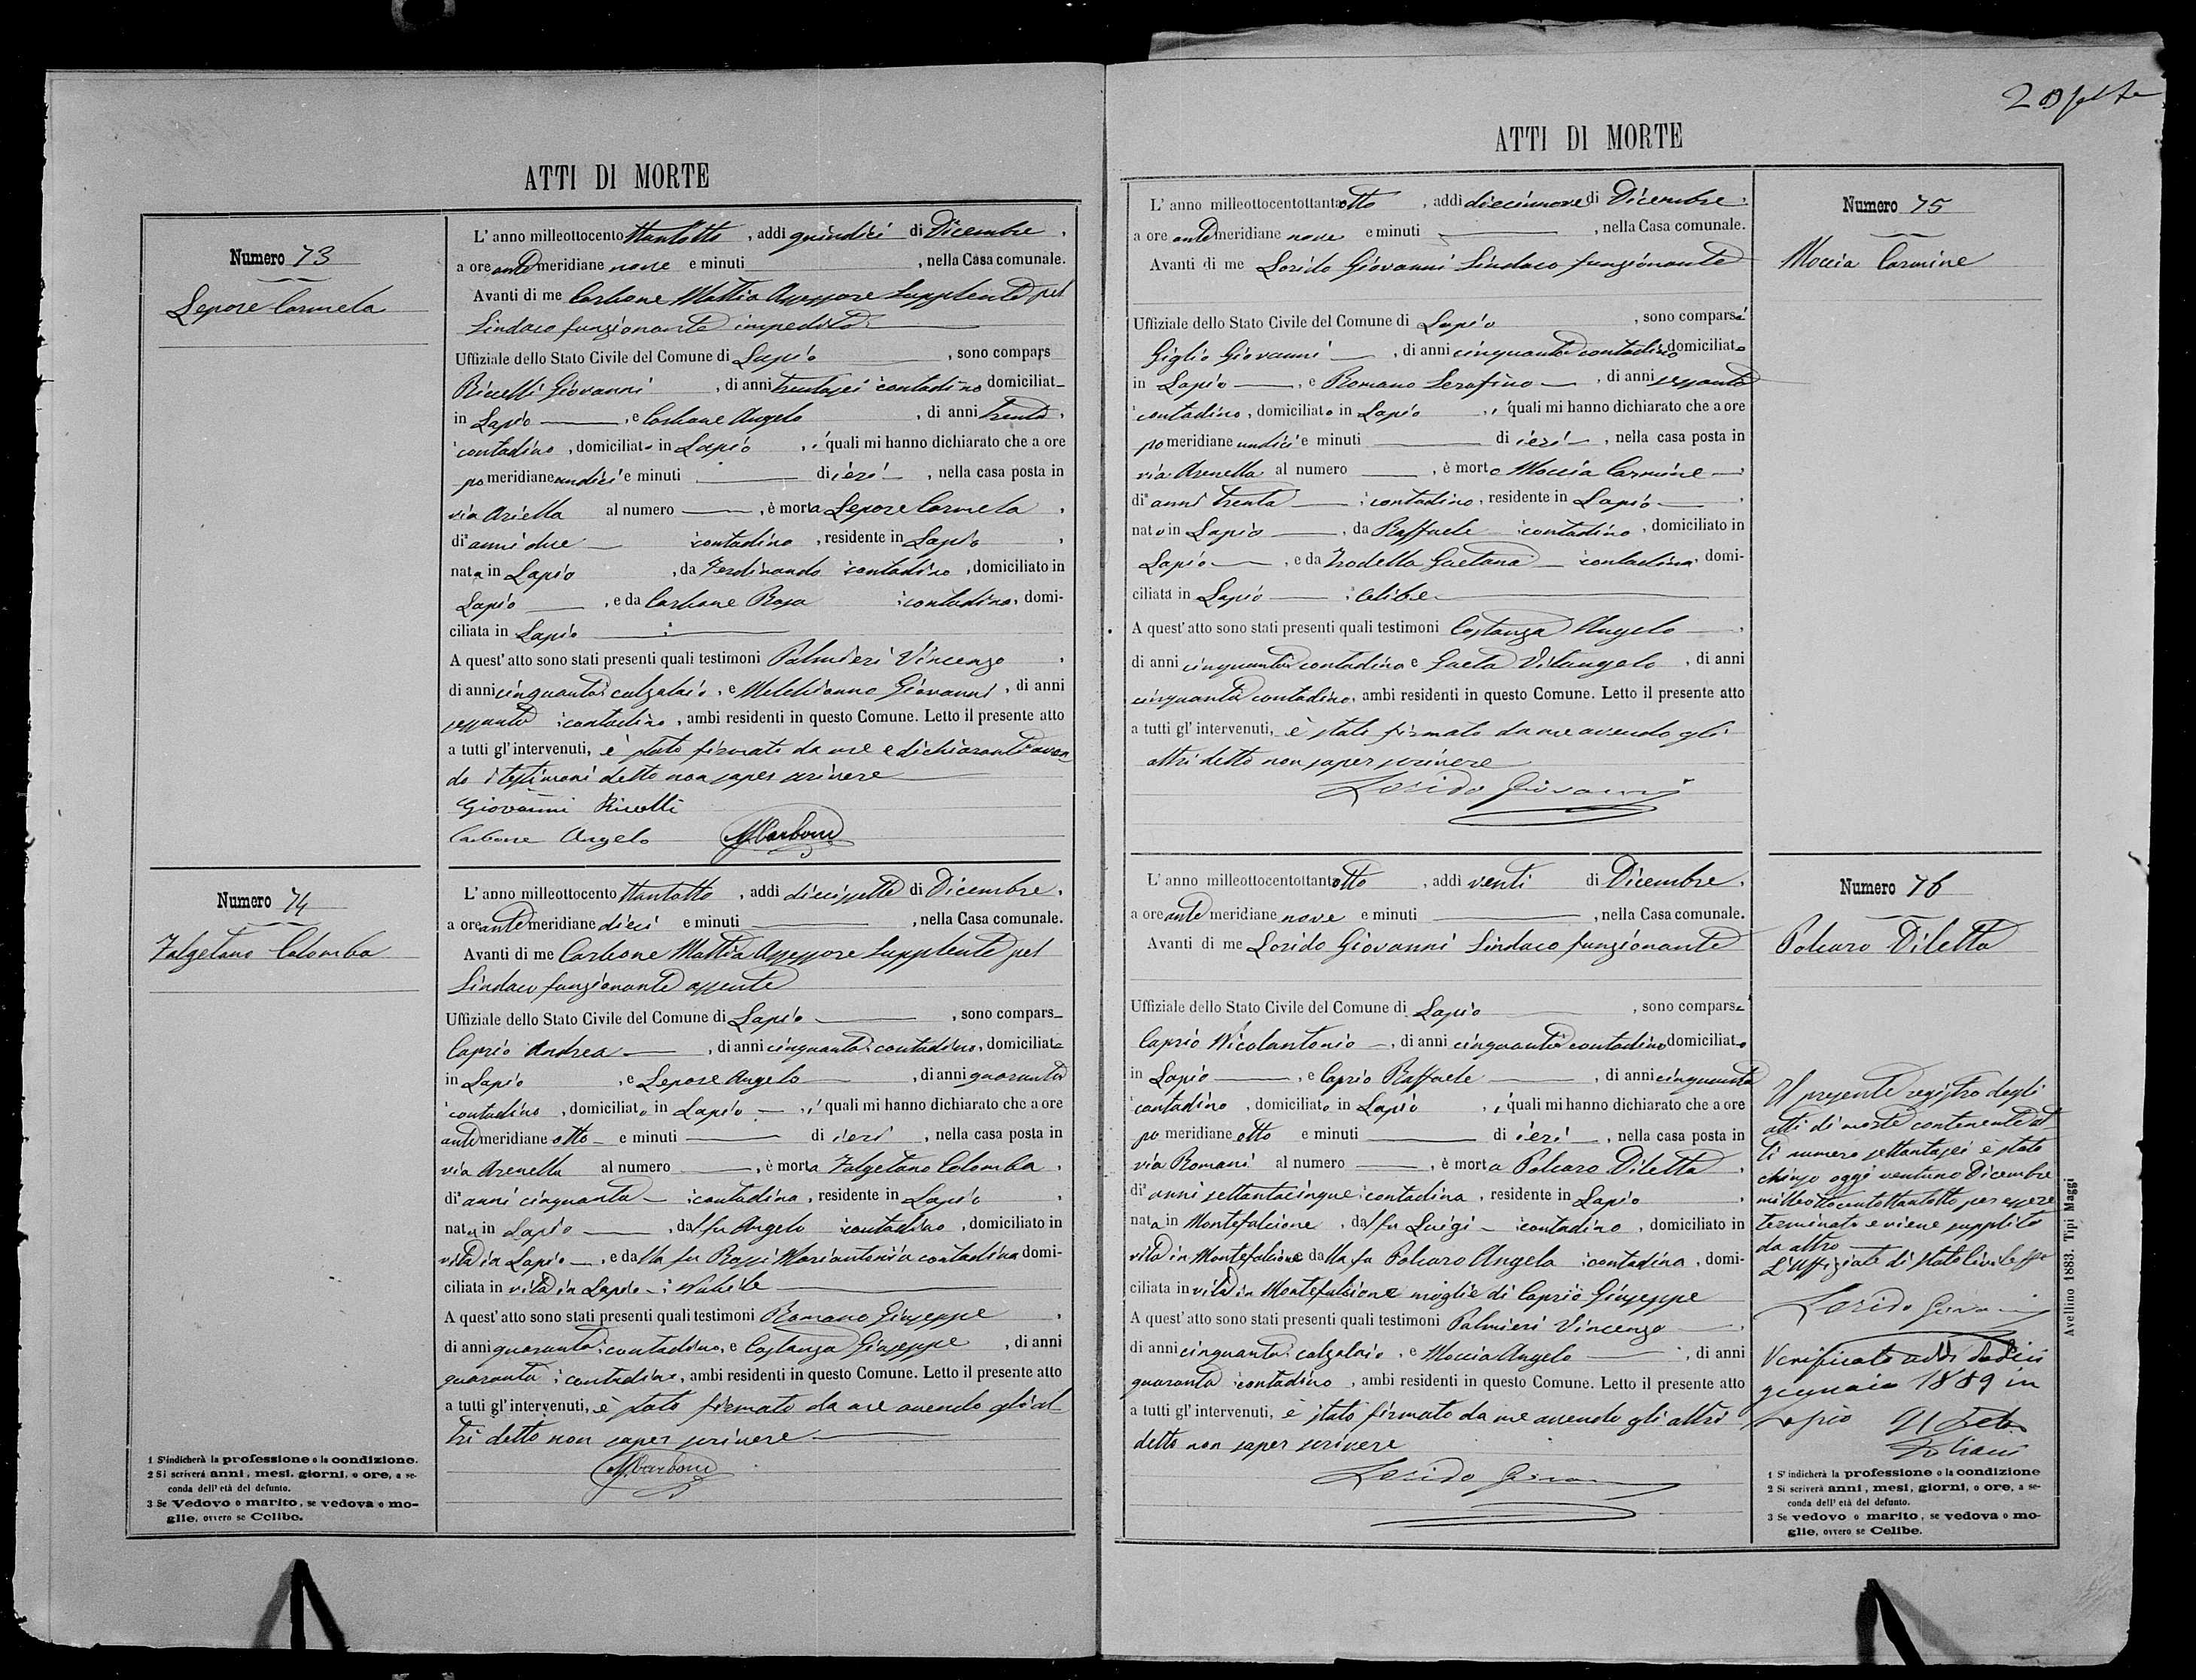 ATTI DI MORTE
Numero 73
Lepore Carmela
L' anno milleottocento ttantotto, addì quindici di Dicembre,
a ore antemeridiane nove e minuti, nella Casa comunale.
Avanti di me Carbone Mattia Assessore Supplente pel
Sindaco funzionante impedito
Uffiziale dello Stato Civile del Comune di Lapio, sono compars
Ricelli Giovanni, di anni trentasei contadino domiciliat
in Lapio, e Carbone Angelo, di anni trenta,
contadino, domiciliato in Lapio, i quali mi hanno dichiarato che a ore
pomeridiane undici e minuti di ieri, nella casa posta in
via Ariella al numero, è morta Lepore Carmela,
di anni due contadino, residente in Lapio,
nata in Lapio, da Ferdinando contadino, domiciliato in
Lapio, e da Carbone Rosa contadina, domi-
ciliata in Lapio
A quest' atto sono stati presenti quali testimoni Palmieri Vincenzo,
di anni cinquanta calzolaio, e Melchionno Giovanni, di anni
sessanta contadino, ambi residenti in questo Comune. Letto il presente atto
a tutti gl' intervenuti, è stato firmato da me e dichiaranti aven
do i testimoni detto non saper scrivere
Giovanni Ricelli
Carbone Angelo MCarbone
Numero 74
Falgetano Colomba
L' anno milleottocento ttantotto, addì diecisette di Dicembre,
a ore antemeridiane dieci e minuti, nella Casa comunale.
Avanti di me Carbone Mattia Assessore Supplente pel
Sindaco funzionante assente
Uffiziale dello Stato Civile del Comune di Lapio, sono compars
Caprio Andrea, di anni cinquanta contadino, domiciliato
in Lapio, e Lepore Angelo, di anni quaranta
contadino, domiciliato in Lapio, i quali mi hanno dichiarato che a ore
antemeridiane otto e minuti di ieri, nella casa posta in
via Arenella al numero, è morta Falgetano Colomba,
di anni cinquanta contadina, residente in Lapio,
nata in Lapio, dal fu Angelo contadino, domiciliato in
vita in Lapio, e dalla fu Rossi Mariantonia contadina domi-
ciliata in vita in Lapio; Nubile
A quest' atto sono stati presenti quali testimoni Romano Giuseppe,
di anni quaranta, contadino, e Costanza Giuseppe, di anni
quaranta, contadino, ambi residenti in questo Comune. Letto il presente atto
a tutti gl' intervenuti, è stato firmato da me avendo gli al
tri detto non saper scrivere
MCarbone
1 S'indicherà la professione o la condizione.
2 Si scriverà anni, mesi, giorni, o ore, a se-
conda dell' età del defunto.
3 Se Vedovo o marito, se vedova o mo-
glie, ovvero se Celibe.
ATTI DI MORTE
L' anno milleottocentottantaotto, addì diecinnove di Dicembre,
a ore antemeridiane nove e minuti, nella Casa comunale.
Avanti di me Lorido Giovanni Sindaco funzionante
Uffiziale dello Stato Civile del Comune di Lapio, sono comparsi
Giglio Giovanni, di anni cinquanta contadino domiciliato
in Lapio, e Romano Serafino, di anni sessanta
contadino, domiciliato in Lapio, i quali mi hanno dichiarato che a ore
pomeridiane undici e minuti di ieri, nella casa posta in
via Arenella al numero, è morto Moccia Carmine,
di anni trenta contadino, residente in Lapio,
nato in Lapio, da Raffaele contadino, domiciliato in
Lapio, e da Trodella Gaetana contadina, domi-
ciliata in Lapio; Celibe
A quest' atto sono stati presenti quali testimoni Costanza Angelo,
di anni cinquanta contadino e Gaeta Vitangelo, di anni
cinquanta contadino, ambi residenti in questo Comune. Letto il presente atto
a tutti gl' intervenuti, è stato firmato da me avendo gli
altri detto non saper scrivere
Lorido Giovanni
Numero 75
Moccia Carmine
L' anno milleottocentottantaotto, addì venti di Dicembre,
a ore antemeridiane nove e minuti, nella Casa comunale.
Avanti di me Lorido Giovanni Sindaco funzionante
Uffiziale dello Stato Civile del Comune di Lapio, sono comparsi
Caprio Nicolantonio, di anni cinquanta contadino domiciliato
in Lapio, e Caprio Raffaele, di anni cinquanta
contadino, domiciliato in Lapio, i quali mi hanno dichiarato che a ore
pomeridiane otto e minuti di ieri, nella casa posta in
via Romani al numero, è morta Polcaro Diletta,
di anni settantacinque contadina, residente in Lapio,
nata in Montefalcione, dal fu Luigi contadino, domiciliato in
vita in Montefalcione dalla fu Polcaro Angela contadina, domi-
ciliata in vita in Montefalcione moglie di Caprio Giuseppe
A quest' atto sono stati presenti quali testimoni Palmieri Vincenzo,
di anni cinquanta calzolaio, e Moccia Angelo, di anni
quaranta contadino, ambi residenti in questo Comune. Letto il presente atto
a tutti gl' intervenuti, è stato firmato da me avendo gli altri
detto non saper scrivere
Lorido Giovanni
Numero 76
Polcaro Diletta
Il presente registro degli
atti di morte contenente at
ti numero settantasei è stato
chiuso oggi ventuno Dicembre
milleottocentottantotto per essere
terminato e viene supplito
da altro
L'Uffiziale di Stato Civile
Lorido Giovanni
Verificato addì dodici
gennaio 1889 in
Lapio
1 S' indicherà la professione o la condizione
2 Si scriverà anni, mesi, giorni, o ore, a se-
conda dell' età del defunto.
3 Se vedovo o marito, se vedova o mo-
glie, ovvero se Celibe.
Avellino 1883. Tipi Maggi